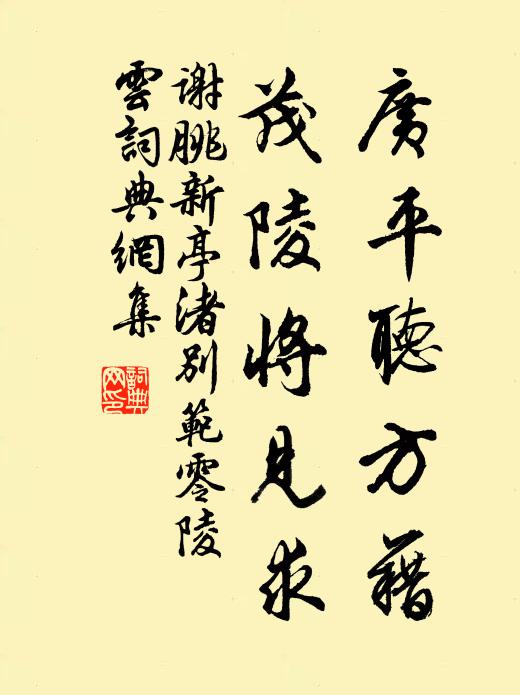 廣平聽方藉
茂陵將見求
謝朓新亭渚別範零陵
雲詞典網集
詞典
网印